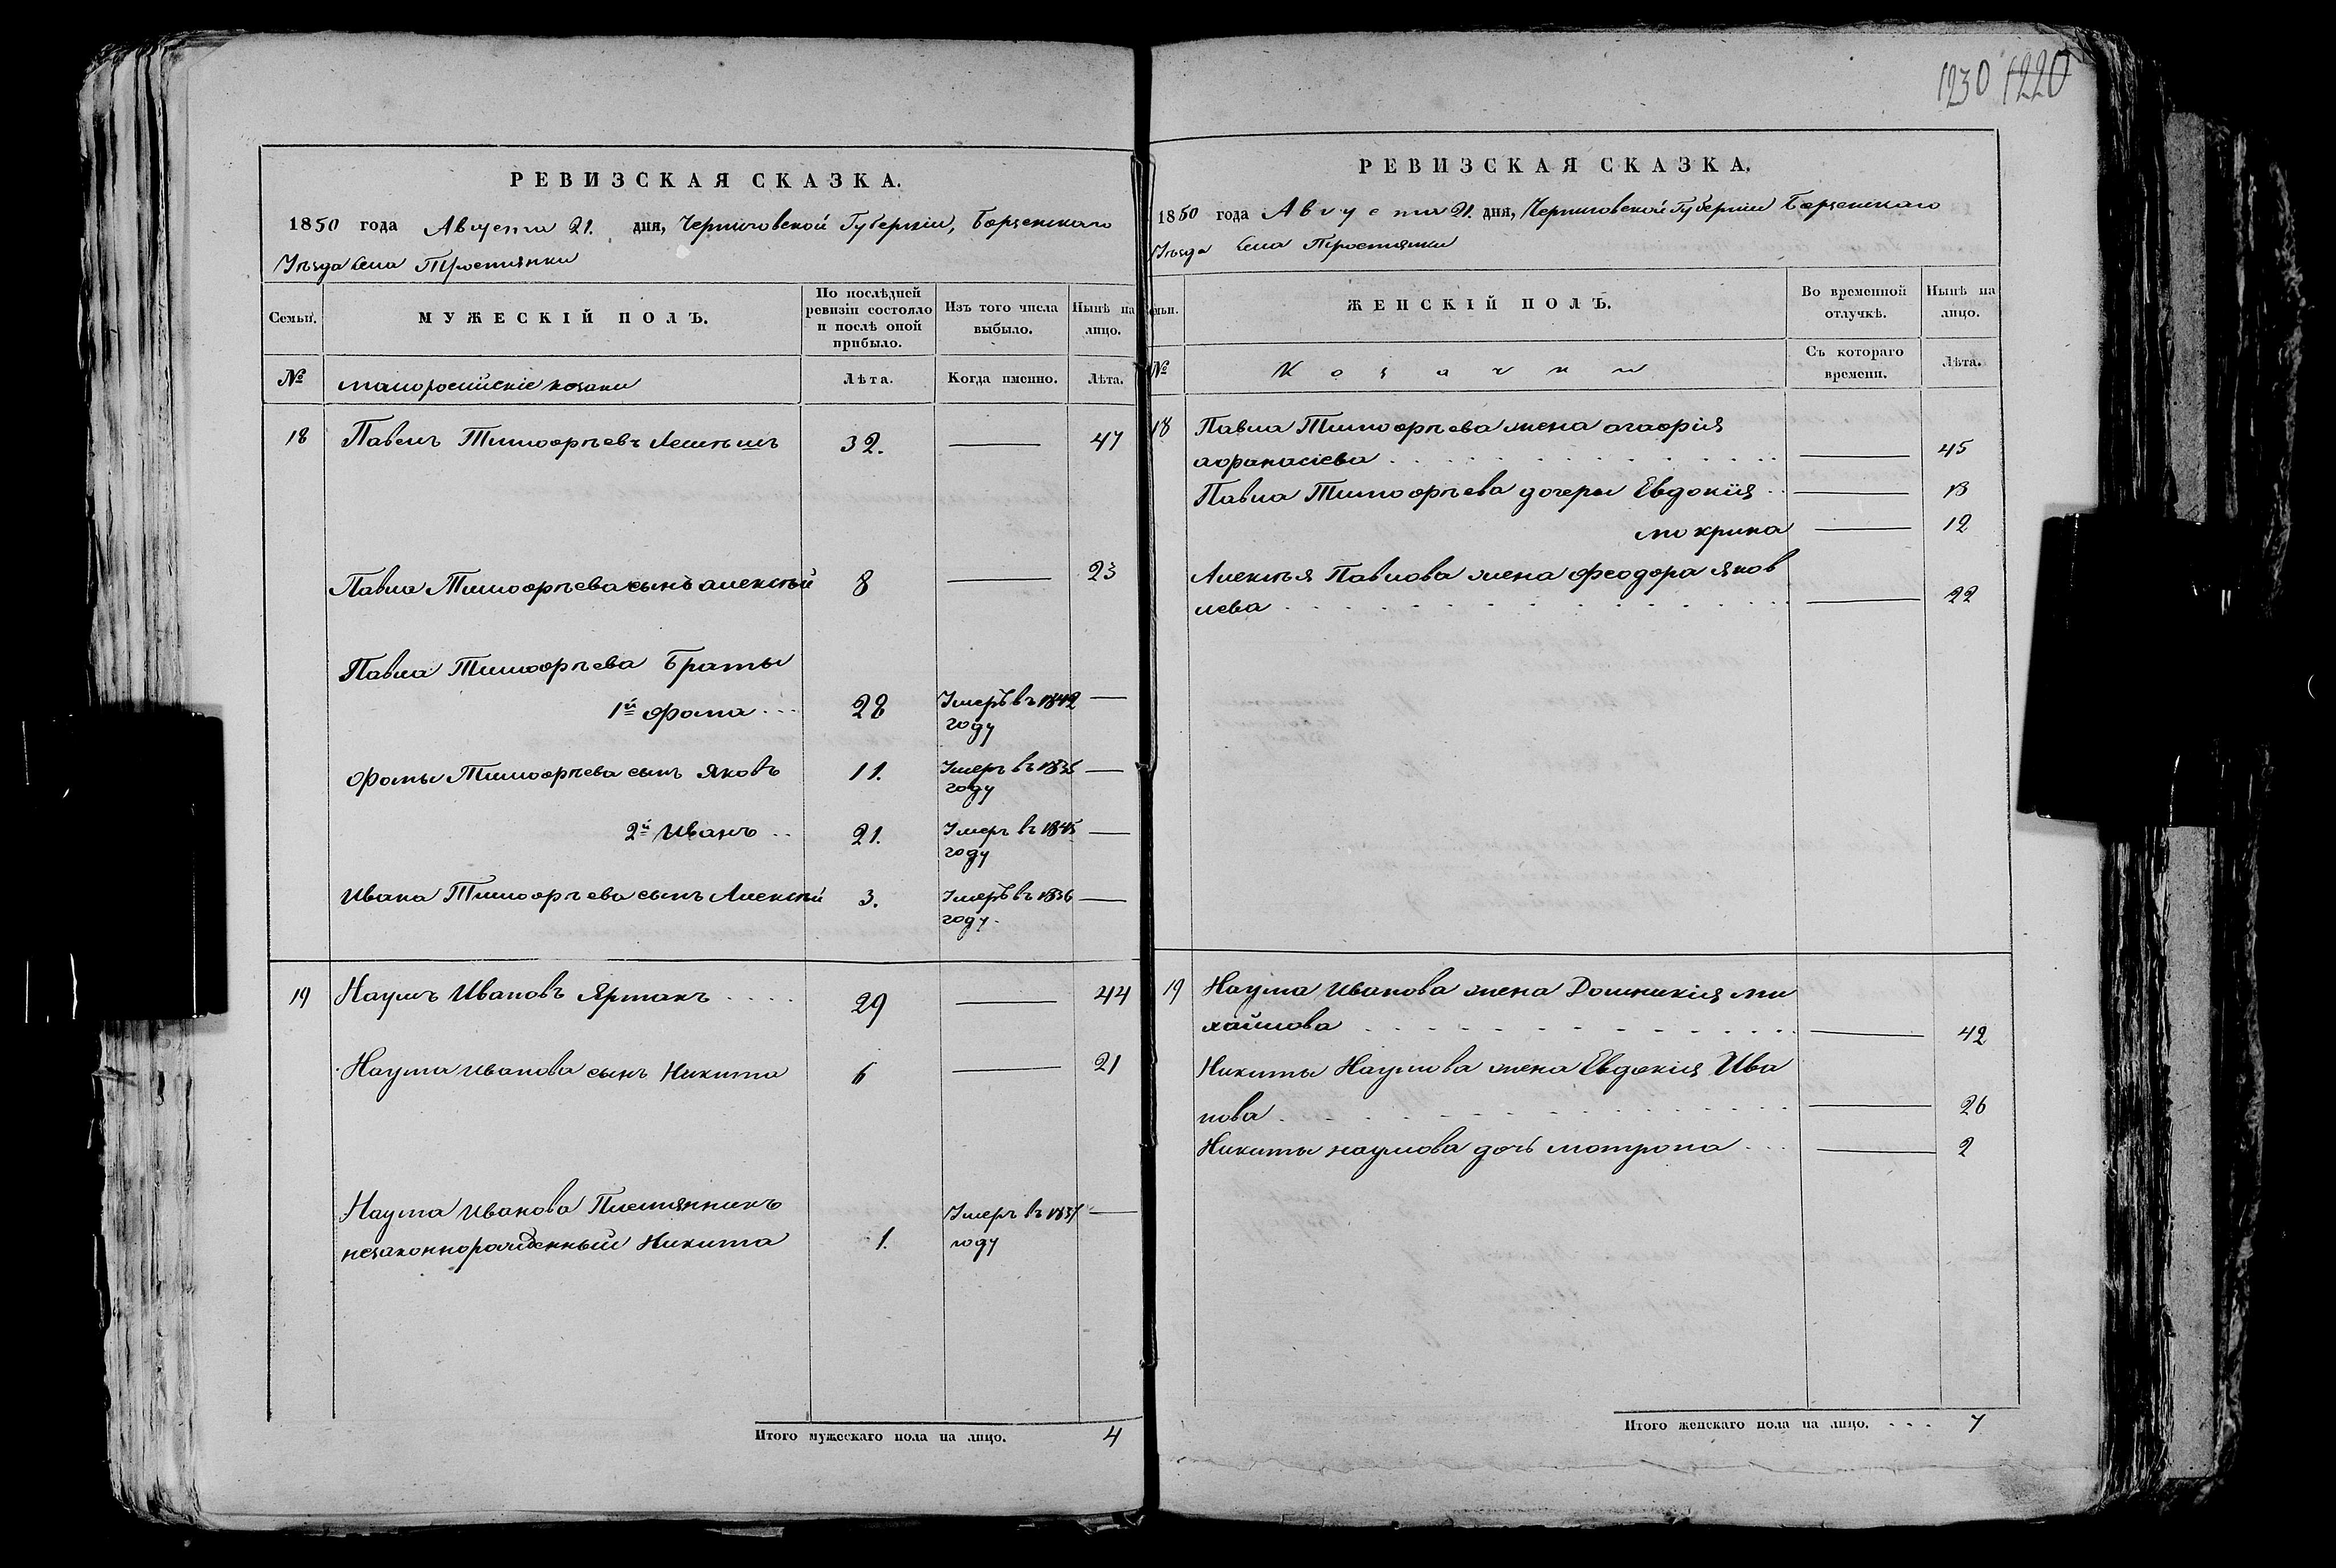 1230 1220
РЕВИЗСКАЯ СКАЗКА.
1850 года Августа 21. дня, Черниговской Губерніи, Борзенского
Уѣзда Села Тростянки
Семьи. МУЖЕСКІЙ ПОЛЪ. По послѣдней ревизіи состояло и послѣ оной прибыло. Изъ того числа выбыло. Нынѣ на лицо.
№ малоросійскіе козаки Лѣта. Когда именно. Лѣта.
18 Павелъ Тимофѣевъ 32. — 47
Павла Тимофѣева сынъ алексѣй 8 — 23
Павла Тимофѣева Браты
1й фома ... 28 Умеръ въ 1842 —
году
фомы Тимофѣева сынъ Яковъ 11. Умеръ въ —
году
2й Иванъ .. 21. Умеръ въ 1845 —
году
Ивана Тимофѣева сынъ Алексѣй 3. Умеръ въ 1836 —
году.
19 Наумъ Ивановъ Ярмакъ .... 29 — 44
Наума Иванова сынъ Никита 6 — 21
Наума Иванова Племянникъ Умеръ въ 1837 —
незаконнорожденный Никита 1. году
Итого мужескаго пола на лицо. 4
РЕВИЗСКАЯ СКАЗКА.
1850 года Августа 21. дня, Черниговской Губерніи Борзенского
Уѣзда Села Тростянки
Семьи. ЖЕНСКІЙ ПОЛЪ. Во временной отлучкѣ. Нынѣ на лицо.
№ Козачки Съ котораго времени. Лѣта.
18 Павла Тимофѣева жена агафія
афанасіева — 45
Павла Тимофѣева дочери Евдокія — 13
мокрина — 12
Алексѣя Павлова жена феодора яков
лева — 22
19 Наума Иванова жена Домникія ми
хайлова — 42
Никиты Наумова жена Евдокія Ива
нова — 26
Никиты наумова дочь мотрона ... — 2
Итого женскаго пола на лицо. ... 7